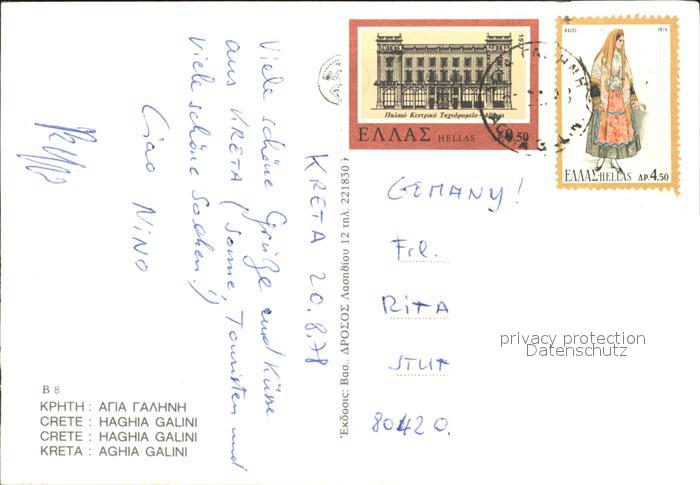 KRETA 20.8.78
Viele schöne Grüße und Küsse
aus KRETA (Sonne, Touristen und
viele schöne Sachen!)
Ciao NINO
B 8
ΚΡΗΤΗ : ΑΓΙΑ ΓΑΛΗΝΗ
CRETE : HAGHIA GALINI
CRETE : HAGHIA GALINI
KRETA : AGHIA GALINI
Ἔκδοσις: Βασ. ΔΡΟΣΟΣ Λασηθίου 12 τηλ. 221830
Παλαιό Κεντρικό Ταχυδρομείο - Ἀθῆναι
ΕΛΛΑΣ HELLAS ΔΡ. 6,50
1974
ΕΛΛΑΣ-HELLAS ΔΡ. 4.50
GEMANY!
Frl.
RITA
STUT
80420.
privacy protection
Datenschutz